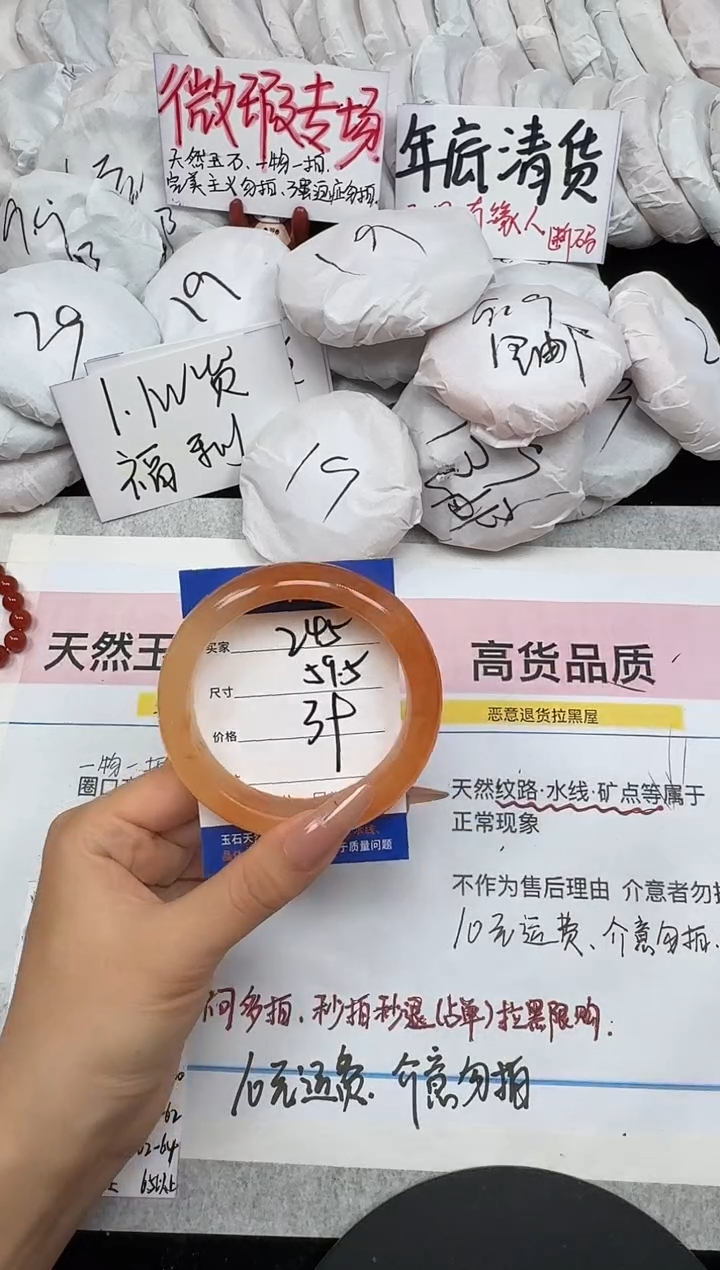 微瑕专场
天然玉石、一物一拍.
完美主义勿拍、强迫症勿拍.
年底清货
有缘人 断码
29
19
19
包邮
1.1W货
福利
19
天然玉
高货品质
恶意退货拉黑屋
买家 245
尺寸 59.5
价格
一物一拍
圈口
天然纹路·水线·矿点等属于
正常现象
不作为售后理由 介意者勿拍
10元运费、介意勿拍.
玉石天 水线、
于质量问题
问多拍、秒拍秒退(占单)拉黑限购.
10元运费、介意勿拍
62
62-64
65以上